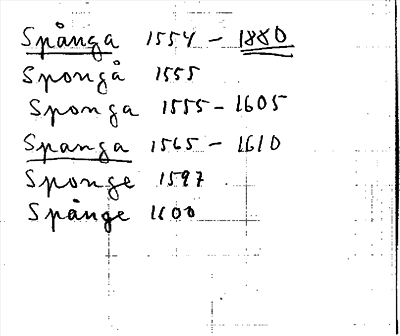 Spånga 1554 - 1880
Spongå 1555
Sponga 1555 - 1605
Spanga 1565 - 1610
Sponge 1597
Spånge 1600